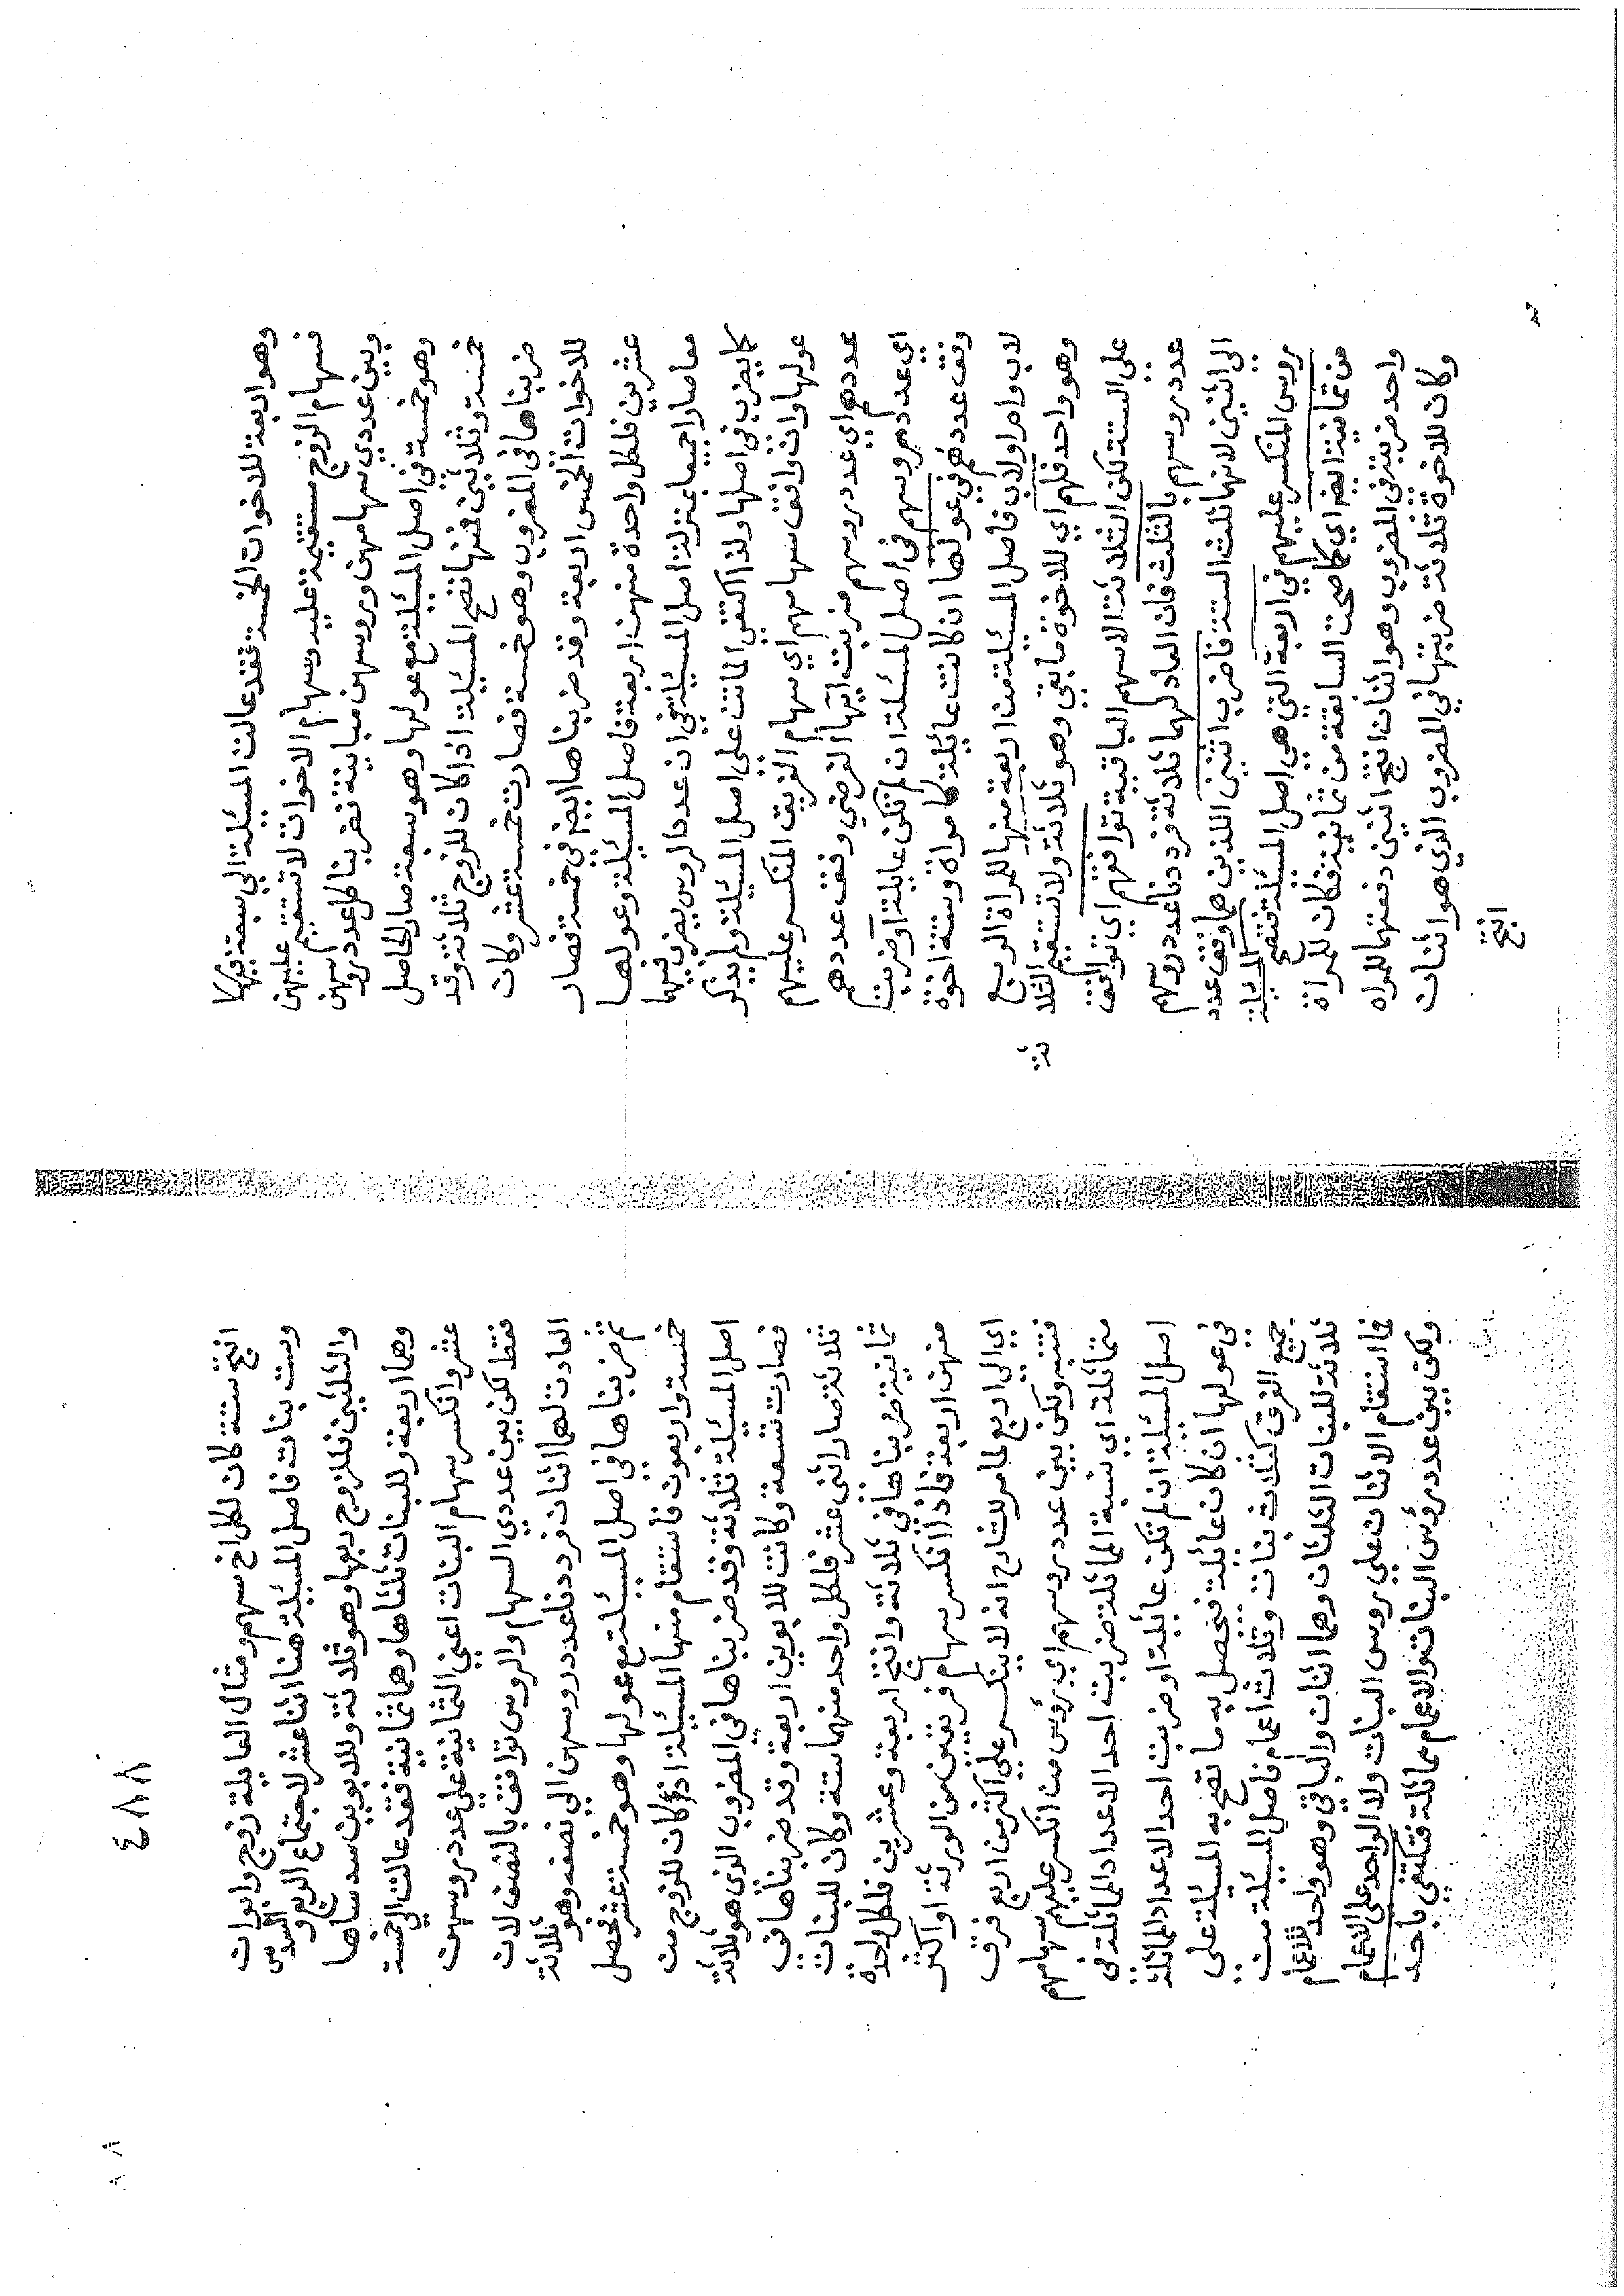 وهو اربعة للاخوات الخمسة فقد عالت المسيلة الي سبعة فيها كا
فسهام الزوج مستقيمة عليه وسهام الاخوات لا تستقيم عليهن
وبين عددي سهامهن وروسهن مباينة فضربنا كل عدد روسهن
وهو خمسة في اصل المسيلة مع عولها وهو سبعة صار الحاصل
خمسة وثلاثين فمنها تصح المسيلة اذ كان للزوج ثلاثة وقد
ضربناها في المضروب وهو خمسة فصارت خمسة عشر وكان
للاخوات الخمس اربعة وقد ضربناها ايضا في خمسة فصار
عشرين فلكل واحدة منهن اربعة فاصل المسيلة وعولها
معا صارا جميعا بمنزلة اصل المسيلة في ان عدد الروس يضرب فيهما
كما يضرب في اصلها ولذا اكتفي الماتن على اصل المسيلة ولم يذكر
عولها وان وافق سهامهم اي سهام الفريق المنكسر عليهم
عددهم اي عدد روسهم ضربت ايها الفرضي وفق عددهم
اي عدد روسهم في اصل المسئلة ان لم تكن عايلة او ضربت
وفق عددهم في عولها ان كانت عايلة كامراة وستة اخوة
لاب وام او لاب فاصل المسيلة من اربعة منها للمراة الربع
وهو واحد فلهم اي للاخوة ما بقي وهو ثلاثة ولا تستقيم الثلا
ثة
على الستة لكن الثلاثة الاسهم الباقية توافقهم اي توافق
عدد روسهم بالثلث فان العاد لهما ثلاثة فرددنا عدد روسهم
الى اثنين لانهما ثلث الستة فاضرب اثنين اللذين هما وفق عدد
روس المنكسر عليهم في اربعة التي هي اصل المسئلة فتصح المسيلة
من ثمانية ايضا اي كما صحت السابقة من ثمانية فكان للمراة
واحد ضربته في المضروب وهو اثنان انتج اثنين دفعتهما للمراه
وكان للاخوة ثلاثة ضربتها في المضروب الذي هو اثنان
انتج
٤٨٨
انتج ستة كان لكل اخ سهم ومثال العايلة زوج وابوان
وست بنات فاصل المسيلة هنا اثنا عشر لاجتماع الربع والسدس
والثلثين للزوج ربعها وهو ثلاثة وللابوين سدساها
وهما اربعة وللبنات ثلثاها وهما ثمانية فقد عالت الي خمسة
عشر وانكسر سهام البنات اعني الثمانية على عدد روسهن
فقط لكن بين عددي السهام والروس توافق بالنصف لان
العاد لهما اثنان فرددنا عدد روسهن الي نصفه وهو ثلاثة
ثم ضربناها في اصل المسيلة مع عولها وهو خمسة عشر فحصل
خمسة واربعون فاستقام منها المسيلة اذ كان للزوج من
اصل المسيلة ثلاثة وقد ضربناها في المضروب الذي هو ثلاثة
فصارت تسعة وكانت للابوين اربعة وقد ضربناها في
ثلاثة صار اثنى عشر فلكل واحد منهما ستة وكان للبنات
ثمانية ضربناها في ثلاثة وانتج اربعة وعشرين فلكل واحدة
منهن اربعة فاذا انكسر سهام فريقين من الورثة او اكثر
اي الي اربع لما مر للشارح انه لا ينكسر على اكثر من اربع فرق
فتشبه ولكن بين عدد روسهم اي رؤس من انكسر عليهم سهامهم
متماثلة اي بنسبة المماثلة ضربت احد الاعداد المماثلة في
اصل المسيلة ان لم تكن عائلة او ضربت احد الاعداد المماثلة
في عولها ان كان عائيلة فتحصل به ما تصح به المسيلة على
جميع الفرق كثلاث بنات وثلاث اعمام فاصل المسيلة من
ثلاثة للبنات الثلثان وهما اثنان والباقي وهو واحد للاعمام
فما استقام الاثنان على روس البنات ولا الواحد على الاعمام
ولكن بين عدد رؤس البنات والاعمام مماثلة فتكتفي باحد